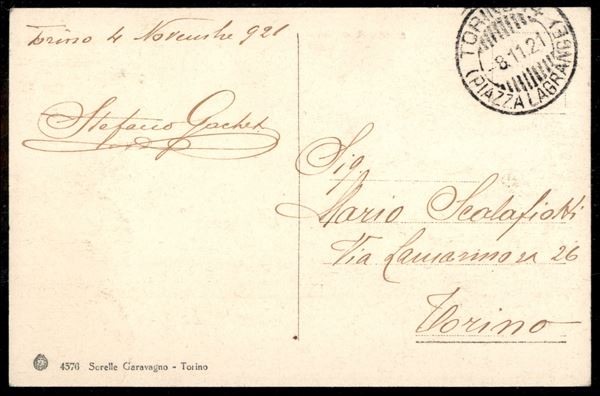 Torino 4 Novembre 921
TORINO 14
8.11.21
(PIAZZA LAGRANGE)
Stefano Gachet
Sig.
Mario Scalafiotti
Via Lamarmora 26
Torino
4576 Sorelle Garavagno - Torino